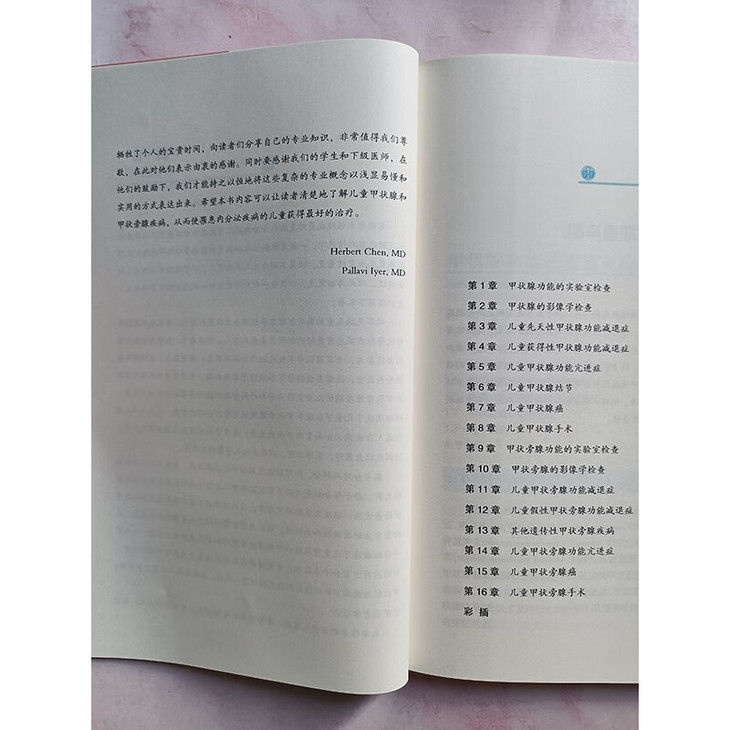 牺牲了个人的宝贵时间，向读者们分享自己的专业知识，非常值得我们尊
敬，在此对他们表示由衷的感谢。同时要感谢我们的学生和下级医师，在
他们的鼓励下，我们才能持之以恒地将这些复杂的专业概念以浅显易懂和
实用的方式表达出来。希望本书内容可以让读者清楚地了解儿童甲状腺和
甲状旁腺疾病，从而使罹患内分泌疾病的儿童获得最好的治疗。
Herbert Chen, MD
Pallavi Iyer, MD
第 1 章 甲状腺功能的实验室检查
第 2 章 甲状腺的影像学检查
第 3 章 儿童先天性甲状腺功能减退症
第 4 章 儿童获得性甲状腺功能减退症
第 5 章 儿童甲状腺功能亢进症
第 6 章 儿童甲状腺结节
第 7 章 儿童甲状腺癌
第 8 章 儿童甲状腺手术
第 9 章 甲状旁腺功能的实验室检查
第 10 章 甲状旁腺的影像学检查
第 11 章 儿童甲状旁腺功能减退症
第 12 章 儿童假性甲状旁腺功能减退症
第 13 章 其他遗传性甲状旁腺疾病
第 14 章 儿童甲状旁腺功能亢进症
第 15 章 儿童甲状旁腺癌
第 16 章 儿童甲状旁腺手术
彩 插